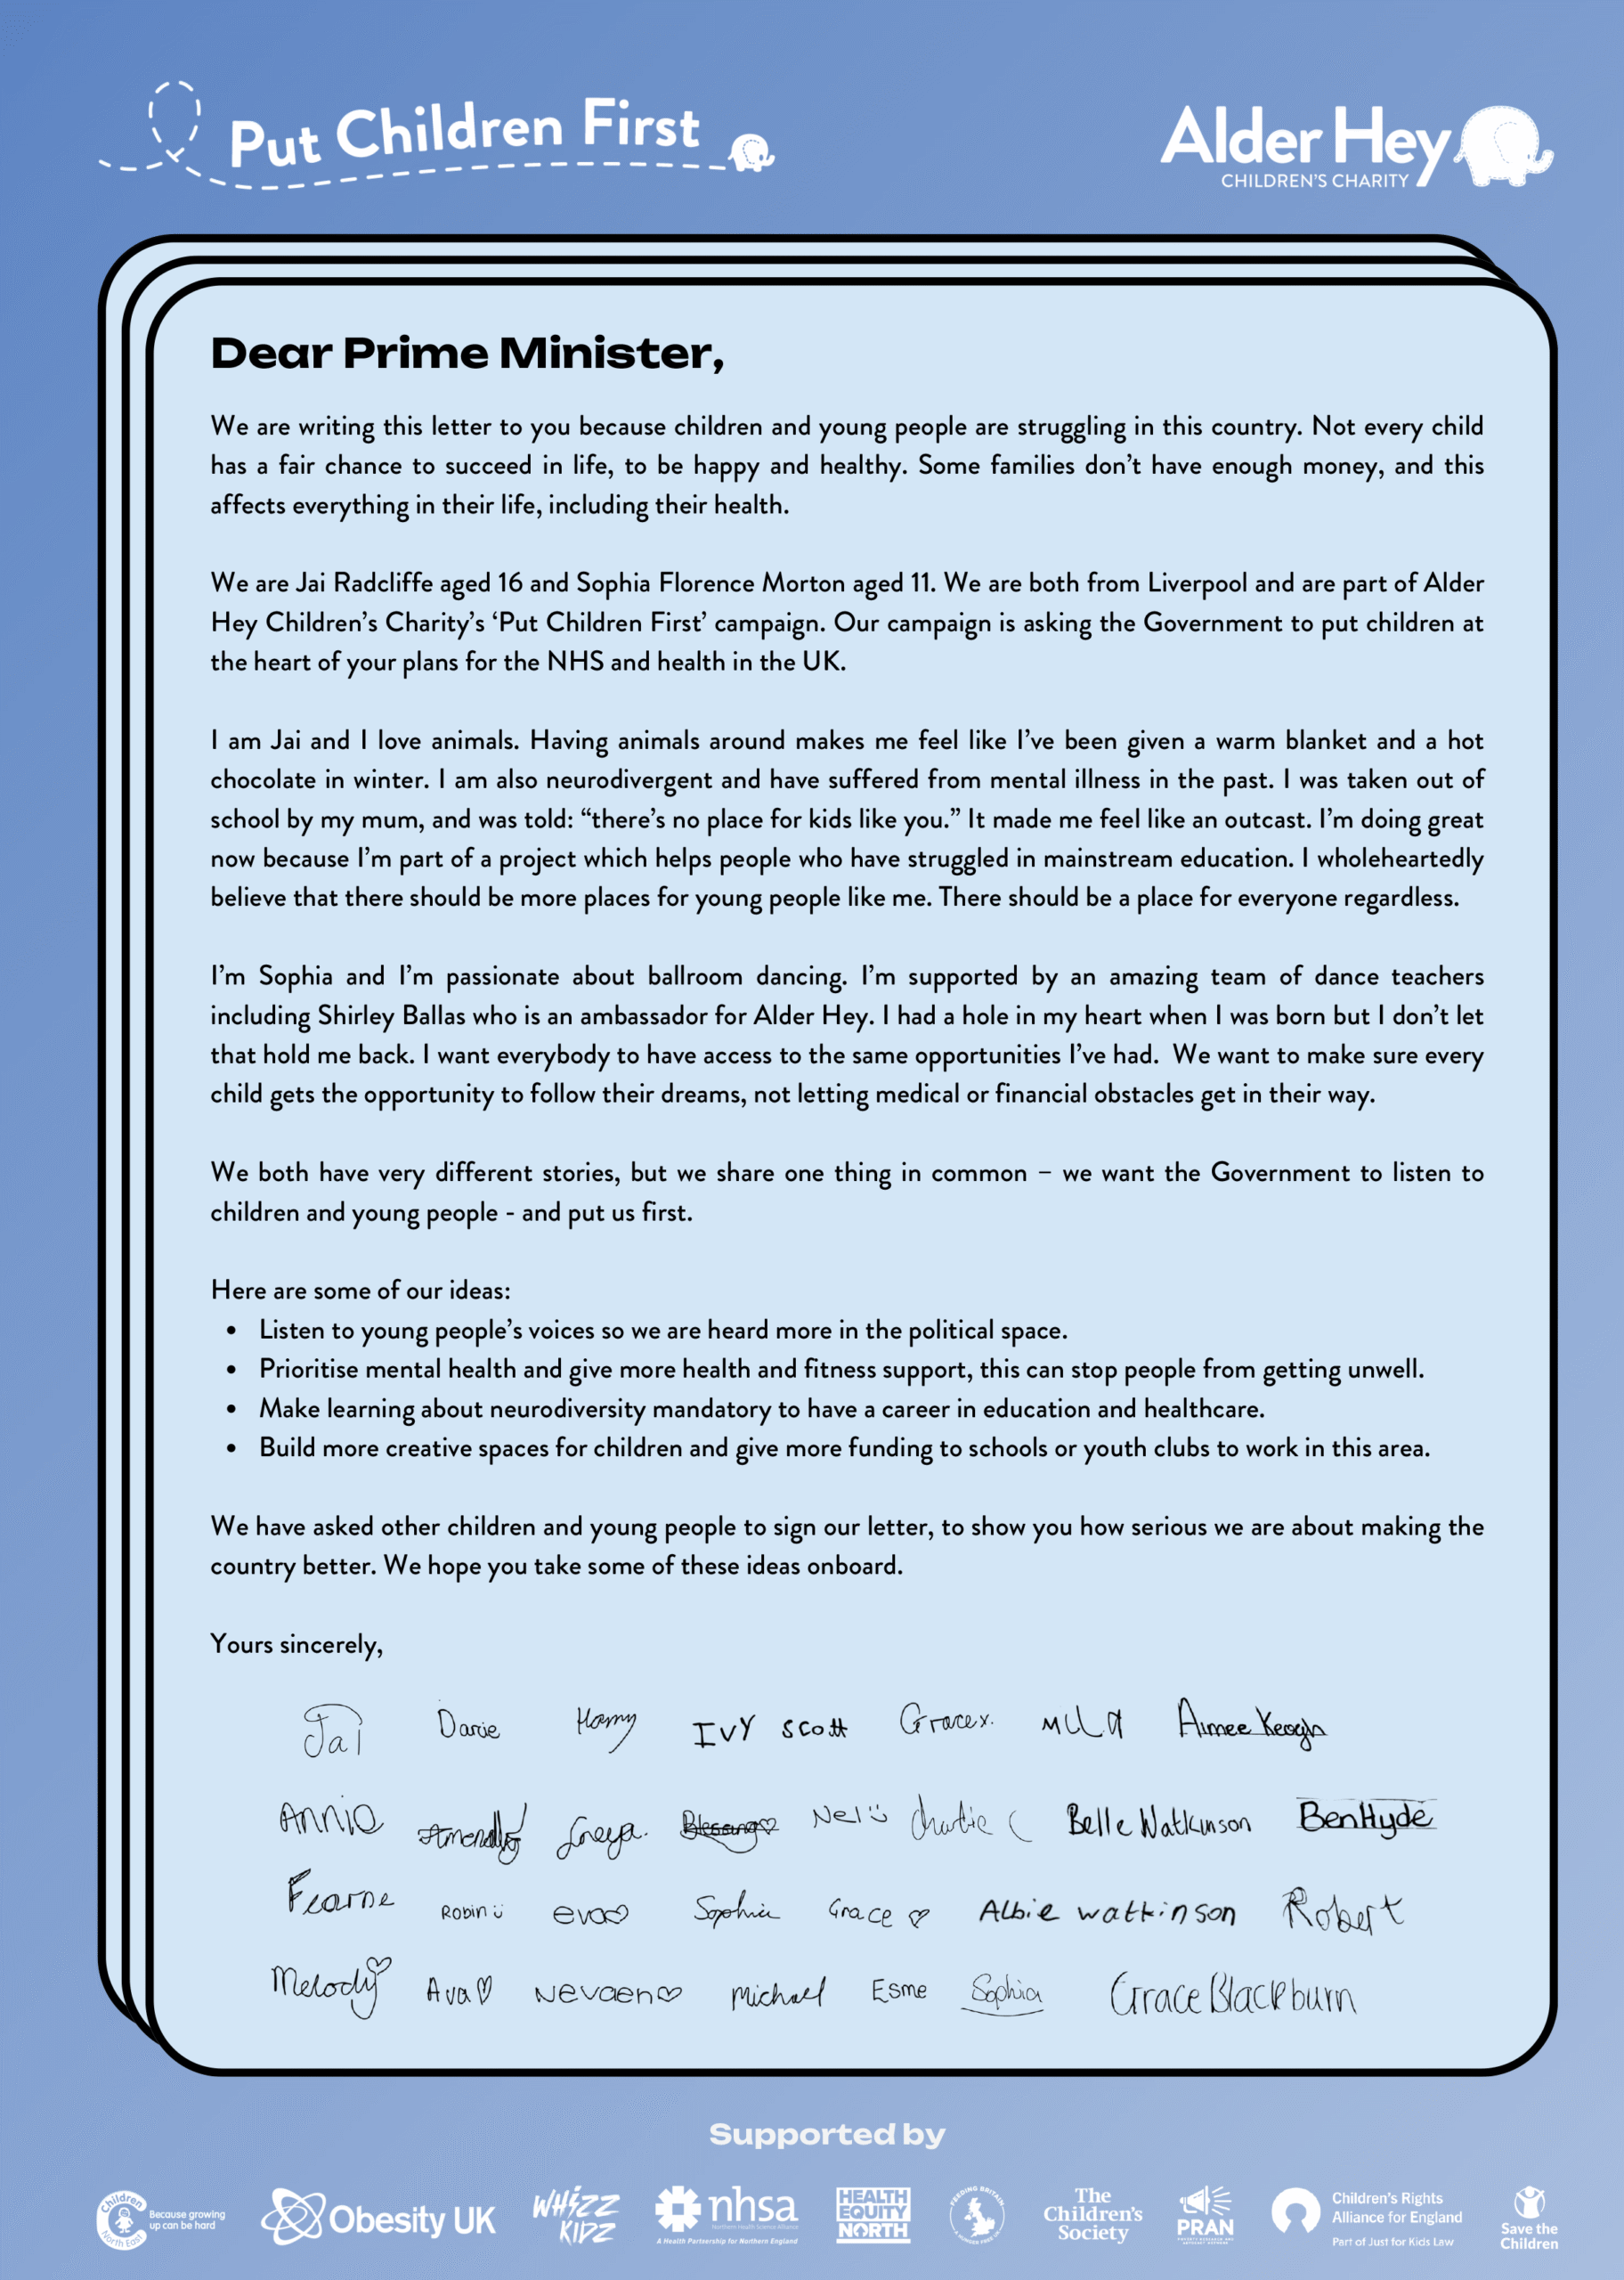 Put Children First
Alder Hey
CHILDREN'S CHARITY
Dear Prime Minister,
We are writing this letter to you because children and young people are struggling in this country. Not every child
has a fair chance to succeed in life, to be happy and healthy. Some families don't have enough money, and this
affects everything in their life, including their health.
We are Jai Radcliffe aged 16 and Sophia Florence Morton aged 11. We are both from Liverpool and are part of Alder
Hey Children's Charity's ‘Put Children First’ campaign. Our campaign is asking the Government to put children at
the heart of your plans for the NHS and health in the UK.
I am Jai and I love animals. Having animals around makes me feel like I've been given a warm blanket and a hot
chocolate in winter. I am also neurodivergent and have suffered from mental illness in the past. I was taken out of
school by my mum, and was told: “there's no place for kids like you.” It made me feel like an outcast. I'm doing great
now because I'm part of a project which helps people who have struggled in mainstream education. I wholeheartedly
believe that there should be more places for young people like me. There should be a place for everyone regardless.
I'm Sophia and I'm passionate about ballroom dancing. I'm supported by an amazing team of dance teachers
including Shirley Ballas who is an ambassador for Alder Hey. I had a hole in my heart when I was born but I don't let
that hold me back. I want everybody to have access to the same opportunities I've had. We want to make sure every
child gets the opportunity to follow their dreams, not letting medical or financial obstacles get in their way.
We both have very different stories, but we share one thing in common – we want the Government to listen to
children and young people - and put us first.
Here are some of our ideas:
• Listen to young people's voices so we are heard more in the political space.
• Prioritise mental health and give more health and fitness support, this can stop people from getting unwell.
• Make learning about neurodiversity mandatory to have a career in education and healthcare.
• Build more creative spaces for children and give more funding to schools or youth clubs to work in this area.
We have asked other children and young people to sign our letter, to show you how serious we are about making the
country better. We hope you take some of these ideas onboard.
Yours sincerely,
Jai Darcie Harry IVY Scott Grace x. Milla Aimee Keogh
Annie Freya. Blessing Nel Charlie Belle Watkinson Ben Hyde
Fearne Robin eva Sophia Grace Albie watkinson Robert
Melody Ava Nevaeh Michael Esme Sophia Grace Blackburn
Supported by
Children North East
Because growing
up can be hard
Obesity UK
WHIZZ
KIDZ
nhsa
Northern Health Science Alliance
A Health Partnership for Northern England
HEALTH
EQUITY
NORTH
FEEDING BRITAIN
The
Children's
Society
PRAN
Children's Rights
Alliance for England
Part of Just for Kids Law
Save the
Children